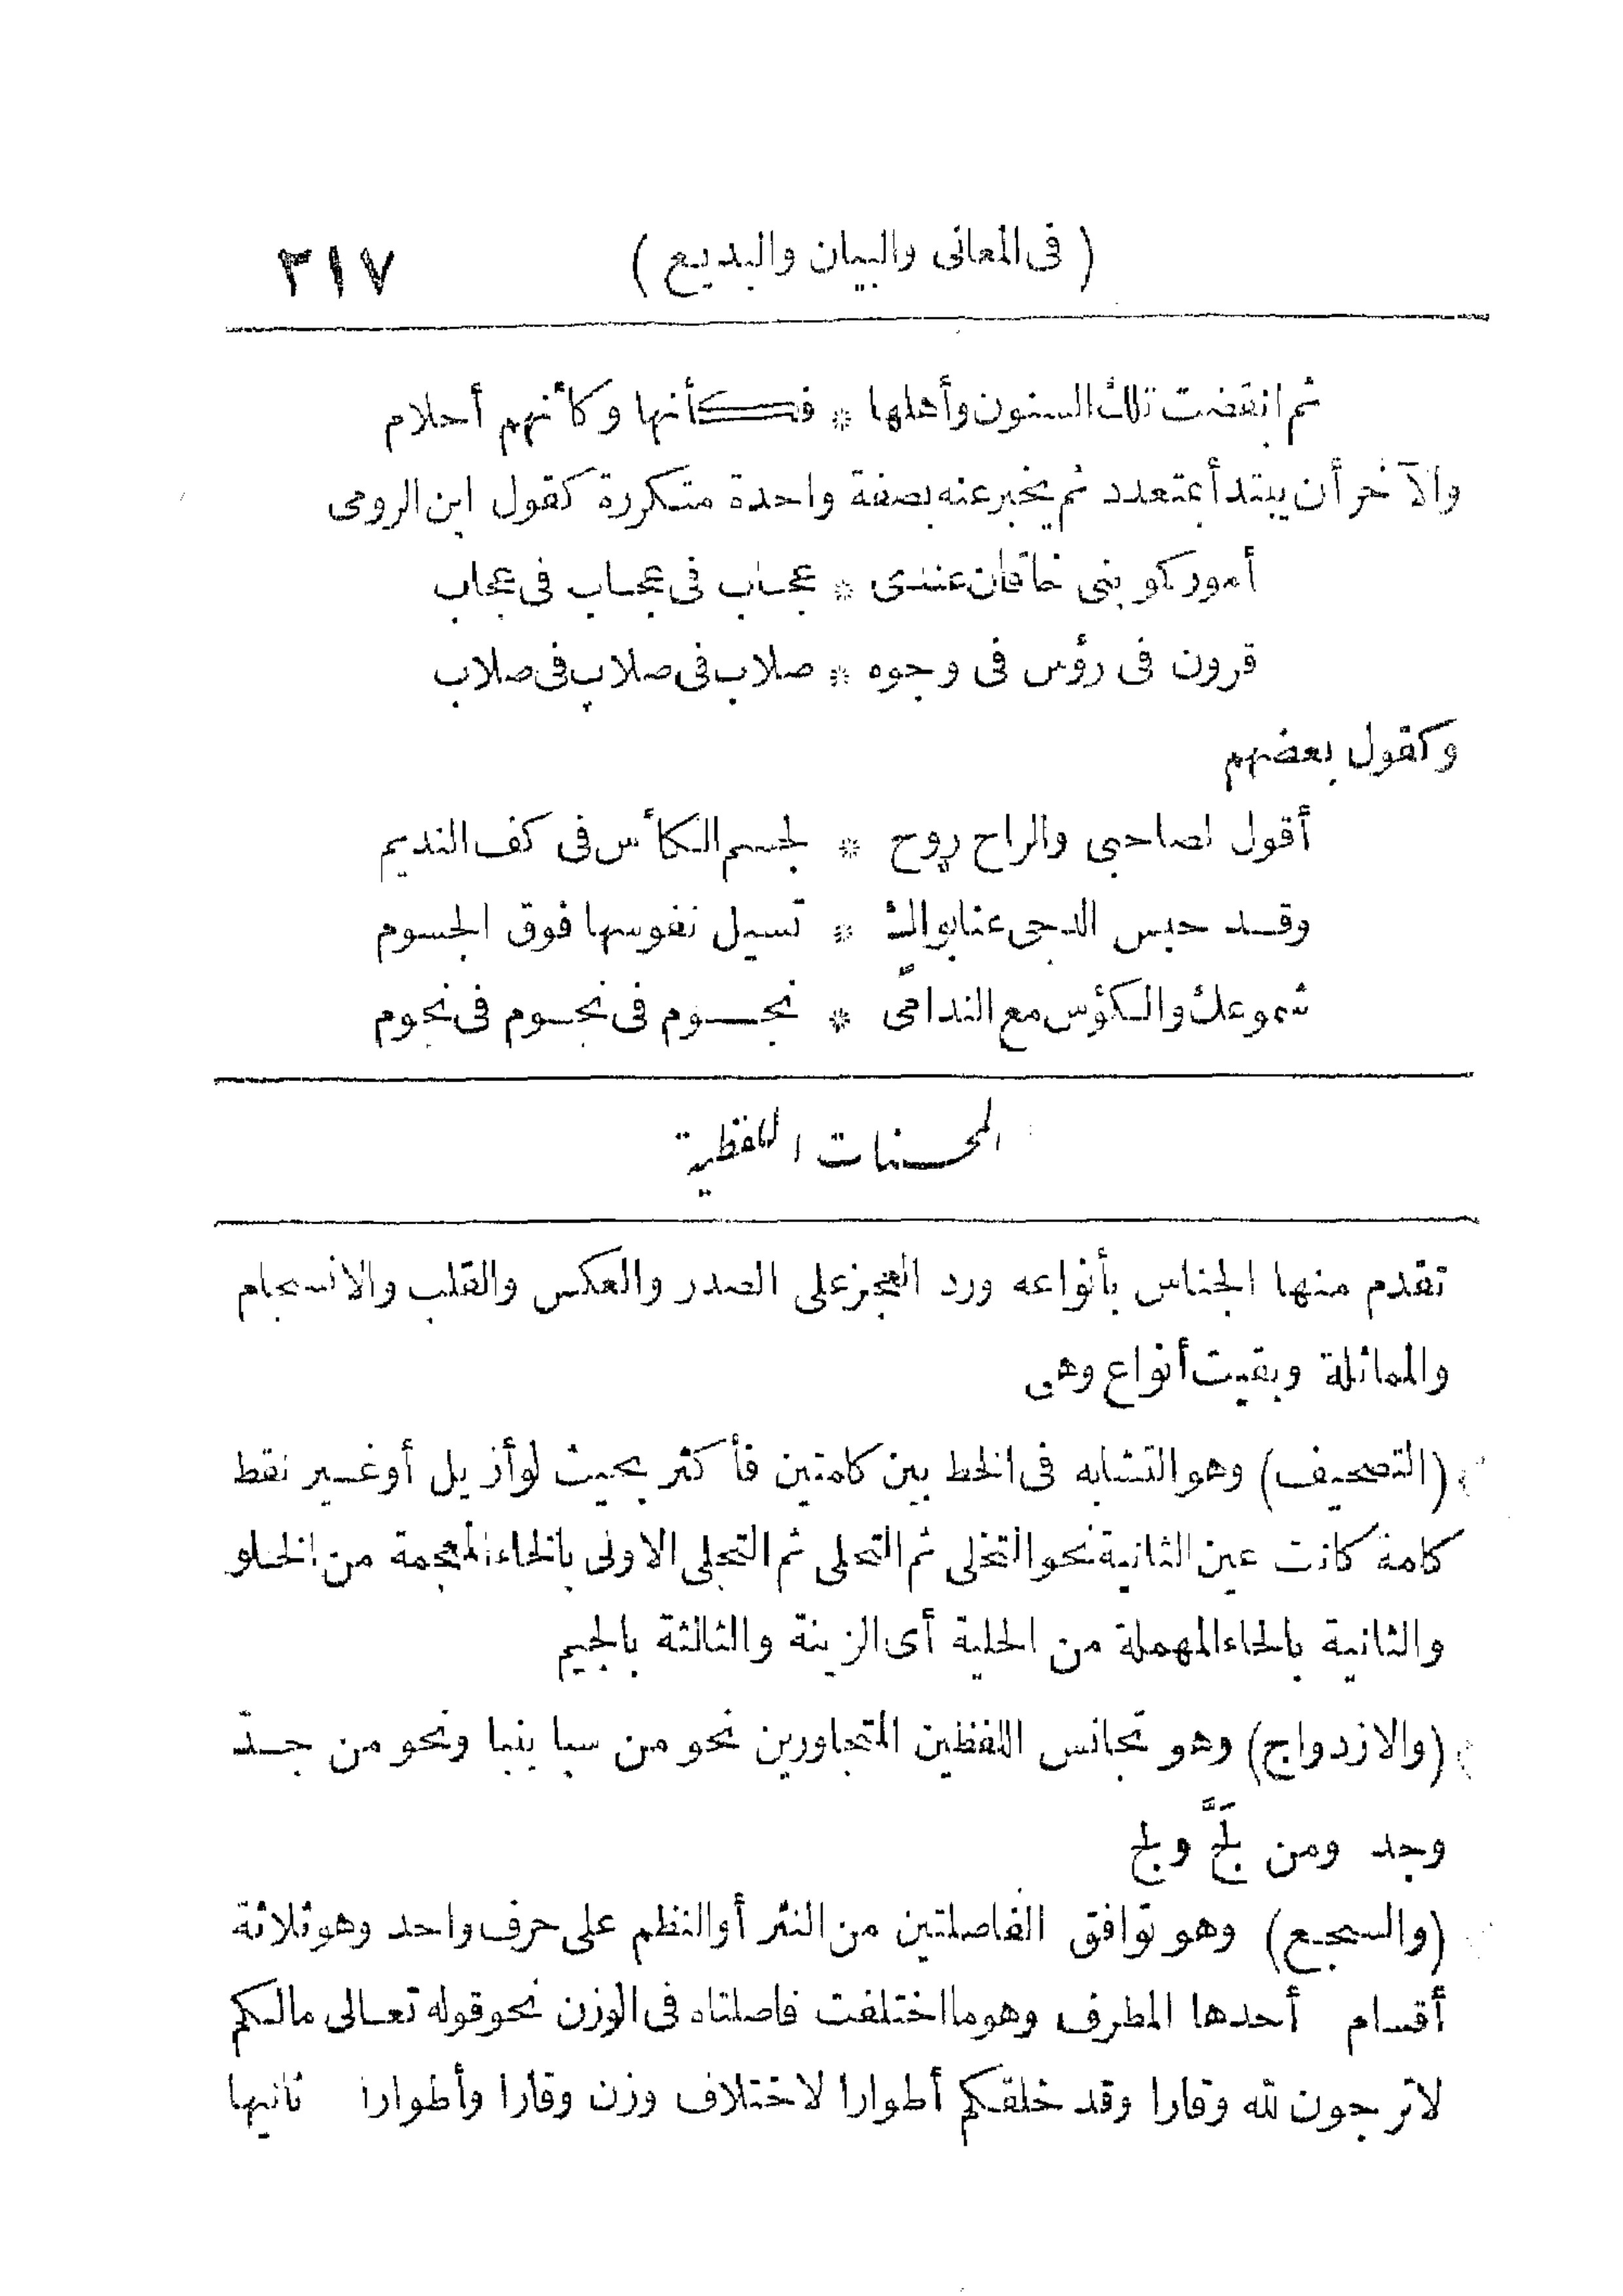 (فى المعانى والبيان والبديع) ٣١٧
ثم انقضت تلك السنون وأهلها * فكأنها وكأنهم أحلام
والآخر أن يبتدأ بمتعدد ثم يخبر عنه بصفة واحدة متكررة كقول ابن الرومى
أموركو بنى خاقان عندى * عجاب فى عجاب فى عجاب
قرون فى رؤس فى وجوه * صلاب فى صلاب فى صلاب
وكقول بعضهم
أقول لصاحبى والراح روح * لجسم الكأس فى كف النديم
وقد حبس الدجى عنا بواك * تسيل نفوسها فوق الجسوم
شموعك والكؤس مع الندامى * نجوم فى نجوم فى نجوم
المحسنات اللفظية
تقدم منها الجناس بأنواعه ورد العجز على الصدر والعكس والقلب والانسجام
والمماثلة وبقيت أنواع وهى
(التصحيف) وهو التشابه فى الخط بين كلمتين فأكثر بحيث لو أزيل أو غير نقط
كلمة كانت عين الثانية نحو التخلى ثم التحلى ثم التجلى الاولى بالخاء المعجمة من الخلو
والثانية بالحاء المهملة من الحلية أى الزينة والثالثة بالجيم
(والازدواج) وهو تجانس اللفظين المتجاورين نحو من سبا بنبا ونحو من جدّ
وجد ومن لَجَّ ولج
(والسجع) وهو توافق الفاصلتين من النثر أو النظم على حرف واحد وهو ثلاثة
أقسام أحدها المطرف وهو ما اختلفت فاصلتاه فى الوزن نحو قوله تعالى مالكم
لا ترجون لله وقارا وقد خلقكم أطوارا لاختلاف وزن وقارا وأطوارا ثانيها